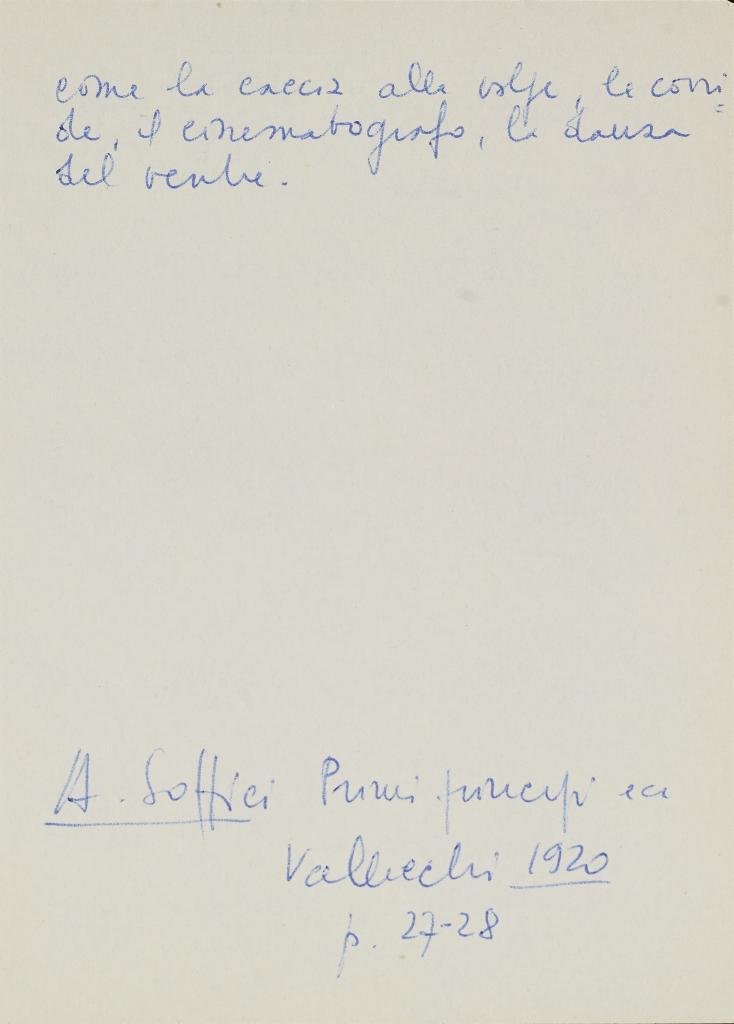 come la caccia alla volpe, le corri=
de, il cinematografo, la danza
del ventre.
A. Soffici Primi principi ecc
Vallecchi 1920
p. 27-28